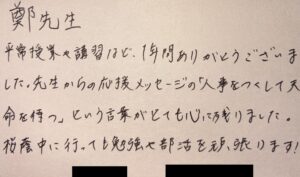 鄭先生
平常授業や講習など、1年間ありがとうございま
した。先生からの応援メッセージの「人事をつくして天
命を待つ」という言葉がとても心に残りました。
桜蔭中に行っても勉強や部活を頑張ります!